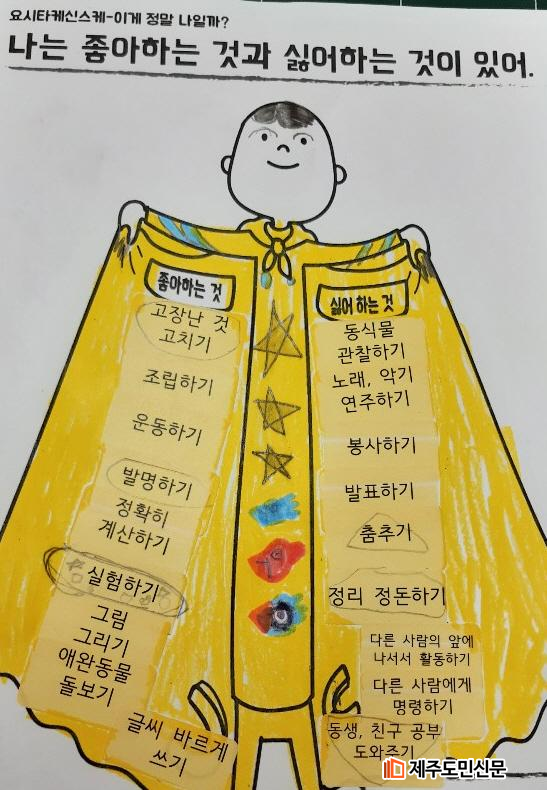 요시타케신스케-이게 정말 나일까?
나는 좋아하는 것과 싫어하는 것이 있어.
좋아하는 것
고장난 것
고치기
조립하기
운동하기
발명하기
정확히
계산하기
실험하기
그림
그리기
애완동물
돌보기
글씨 바르게
쓰기
싫어 하는 것
동식물
관찰하기
노래, 악기
연주하기
봉사하기
발표하기
춤추기
정리 정돈하기
다른 사람의 앞에
나서서 활동하기
다른 사람에게
명령하기
동생, 친구 공부
도와주기
제주도민신문